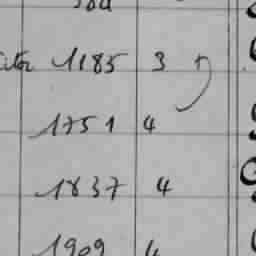 1185 3
1751 4
1837 4
1909 4